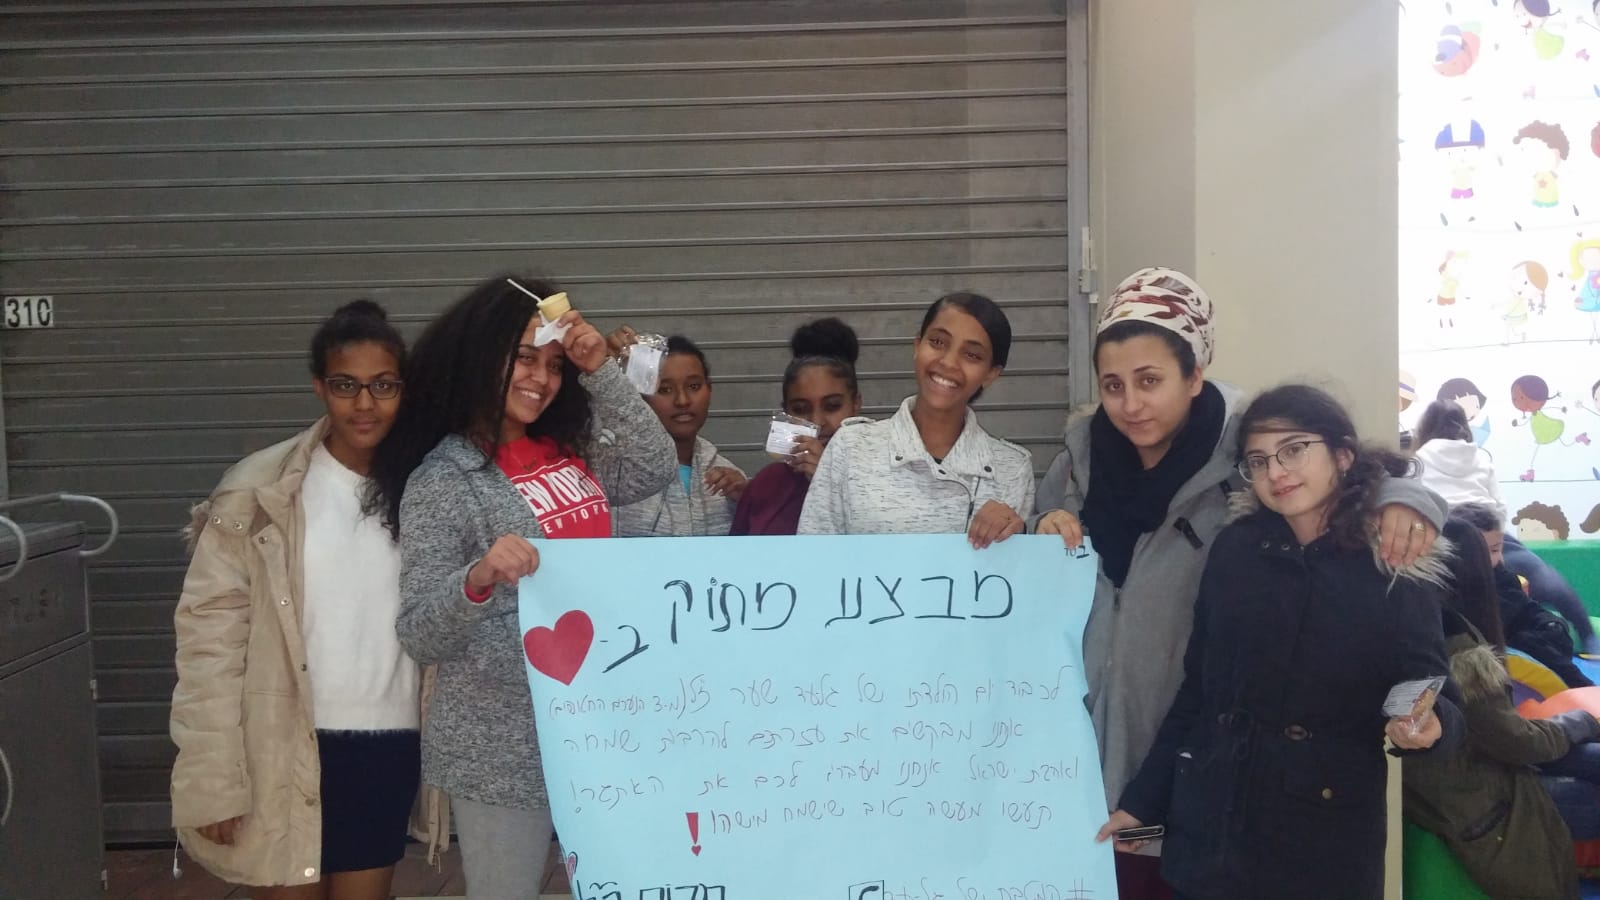 310
NEW YORK
NEW YORK
בסד
מבצעו מתוק
ב-
לכבוד יום הולדתו של גלעד שער ז"ל (מ-3 הנערים החטופים)
אנחנו מבקשים את עזרתכם להרבות שמחה
ואהבת ישראל אנחנו מעבירים לכם את האתגר!
תעשו מעשה טוב שישמח מישהו!